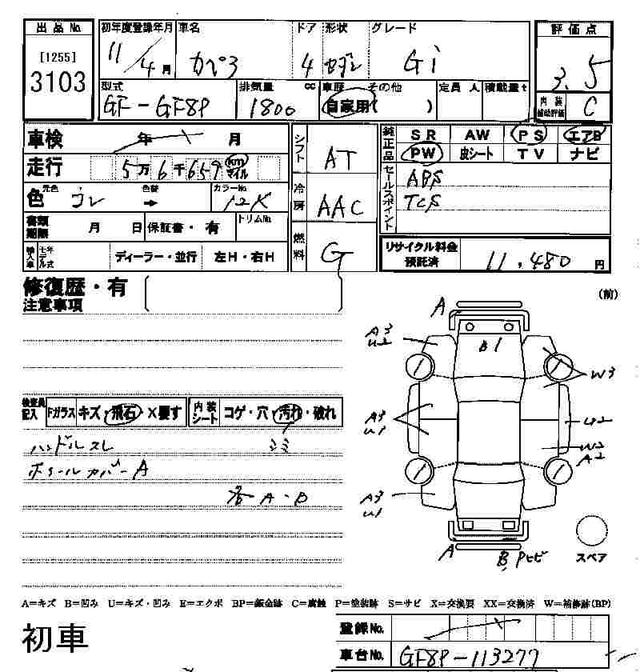 出品 No. 初年度登録年月 車名 ドア 形状 グレード 評価点
[1255] 11/4月 カペラ 4 セダン Gi 3.5
3103
型式 排気量 cc 車歴 その他 定員 人 積載量 t 内装補助評価 C
GF-GF8P 1800 自家用( )
車検 年 月 シフト AT 純正品 SR AW PS エアB
走行 5万6千659 km マイル PW 皮シート TV ナビ
色 元色 色替 → カラーNo. 12K 冷房 AAC セールスポイント ABS
TCS
書類期限 月 日 保証書・有 トリムNo. 燃料 G
輸入車 モデル年式 ディーラー・並行 左H・右H リサイクル料金預託済 11,480 円
修復歴・有
注意事項
(前)
A
A3 U2 B1 W3
A3 U1 U2
W2
A2
A3 U1
A B,Pヒビ スペア
検査員記入 Fガラス キズ・飛石・X要す 内装シート コゲ・穴・汚れ・破れ
ハンドルスレ シミ
ホイールカバーA
各A・B
A=キズ B=凹み U=キズ・凹み E=エクボ BP=鈑金跡 C=腐蝕 P=塗装跡 S=サビ X=交換要 XX=交換済 W=補修跡(BP)
初車 登録No.
車台No. GF8P-113277